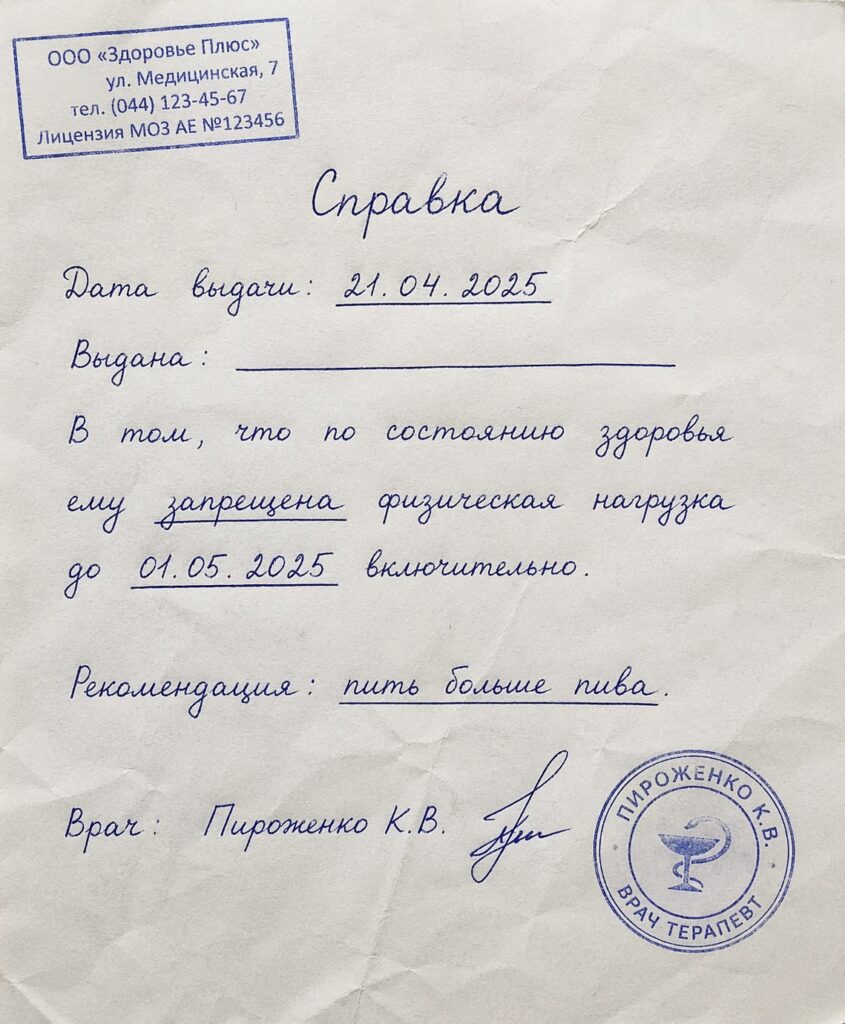 ООО «Здоровье Плюс»
ул. Медицинская, 7
тел. (044) 123-45-67
Лицензия МОЗ АЕ №123456
Справка
Дата выдачи: 21.04.2025
Выдана:
В том, что по состоянию здоровья
ему запрещена физическая нагрузка
до 01.05.2025 включительно.
Рекомендация: пить больше пива.
Врач: Пироженко К.В.
ПИРОЖЕНКО К.В.
ВРАЧ ТЕРАПЕВТ